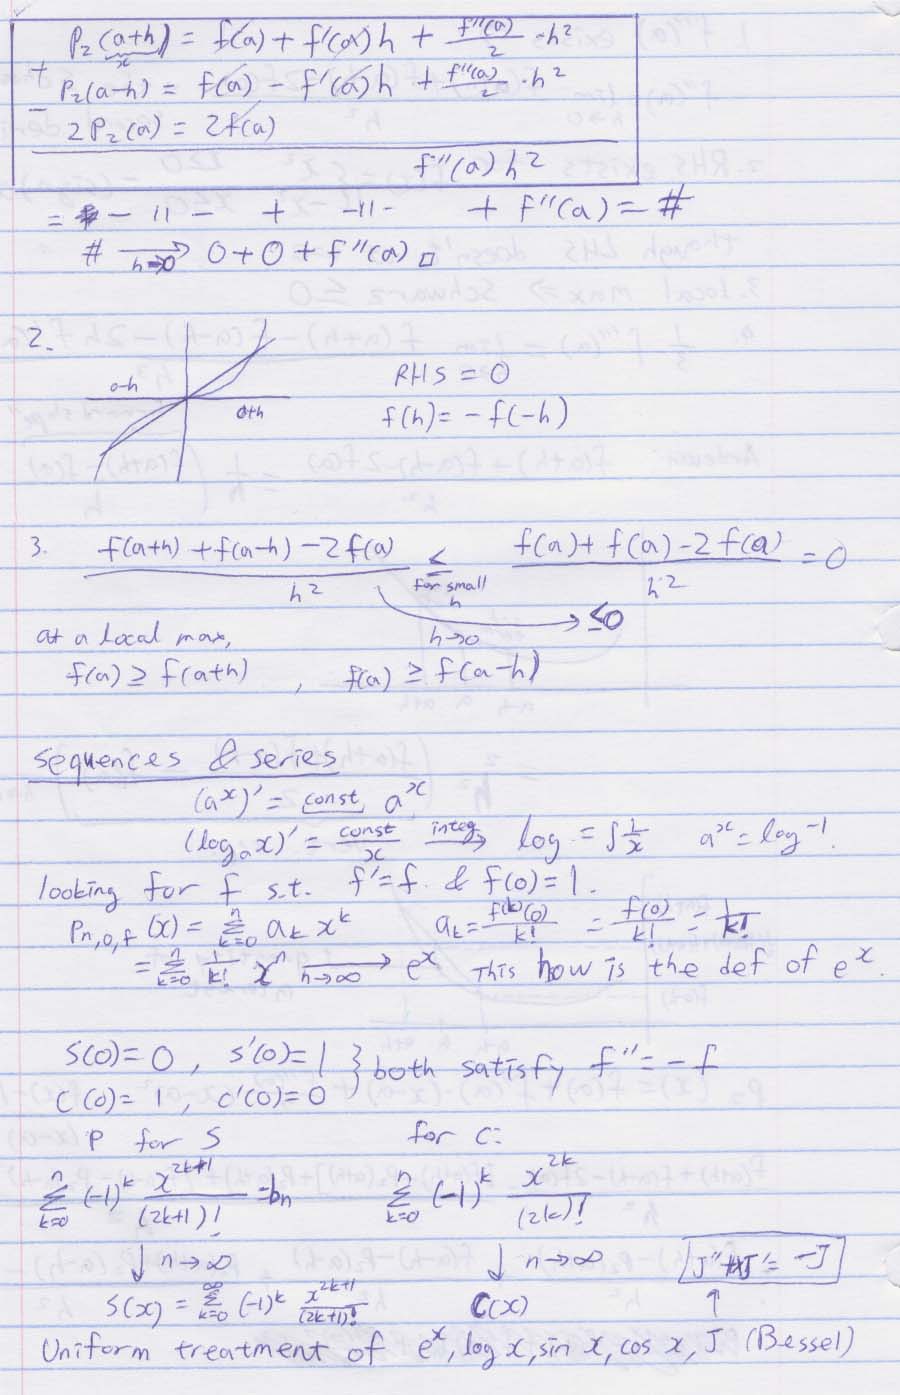 P₂(a+h) = f(a) + f'(a)h + f''(a)/2 · h²
x
+ P₂(a-h) = f(a) - f'(a)h + f''(a)/2 · h²
- 2P₂(a) = 2f(a)
f''(a)h²
= - 11 - + -11- + f''(a) = #
# →(h→0) 0 + 0 + f''(a) □
2.
a-h
a+h
RHS = 0
f(h) = -f(-h)
3. (f(a+h) + f(a-h) - 2f(a))/h² ≤ (for small h) (f(a) + f(a) - 2f(a))/h² = 0
h→0 ≤0
at a local max,
f(a) ≥ f(a+h) , f(a) ≥ f(a-h)
sequences & series
(aˣ)' = const aˣ
(logₐx)' = const/x integ→ log = ∫1/x aˣ = log⁻¹.
looking for f s.t. f' = f. & f(0) = 1.
Pn,0,f (x) = Σ(k=0→n) aₖ xᵏ aₖ = f(k)(0)/k! = f(0)/k! = 1/k!
= Σ(k=0→n) 1/k! xⁿ →(n→∞) eˣ This how is the def of eˣ.
S(0) = 0 , s'(0) = 1 } both satisfy f'' = -f
C(0) = 1 , c'(0) = 0
P for S for C:
Σ(k=0→n) (-1)ᵏ x²ᵏ⁺¹/(2k+1)! = bn Σ(k=0→n) (-1)ᵏ x²ᵏ/(2k)!
↓ n→∞ ↓ n→∞ J'' + xJ' = -J
S(x) = Σ(k=0→∞) (-1)ᵏ x²ᵏ⁺¹/(2k+1)! C(x) ↑
Uniform treatment of eˣ, log x, sin x, cos x, J (Bessel)